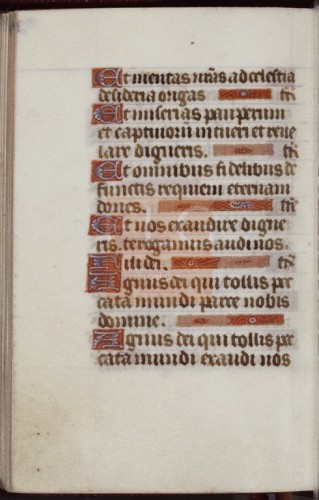 Et mentas nr̄as ad celestia
desideria origas tr̄
Et miserias pauperum
et captiuorū intueri et reue
lare digneris. tr̄
Et omnibus fidelibus de
functis requiem eternam
dones. tr̄
Et nos exaudire digne
ris. te rogamus audi nos.
Fili dei. tr̄
Agnus dei qui tollis pec
cata mundi parce nobis
domine.
Agnus dei qui tollis pec
cata mundi exaudi nos